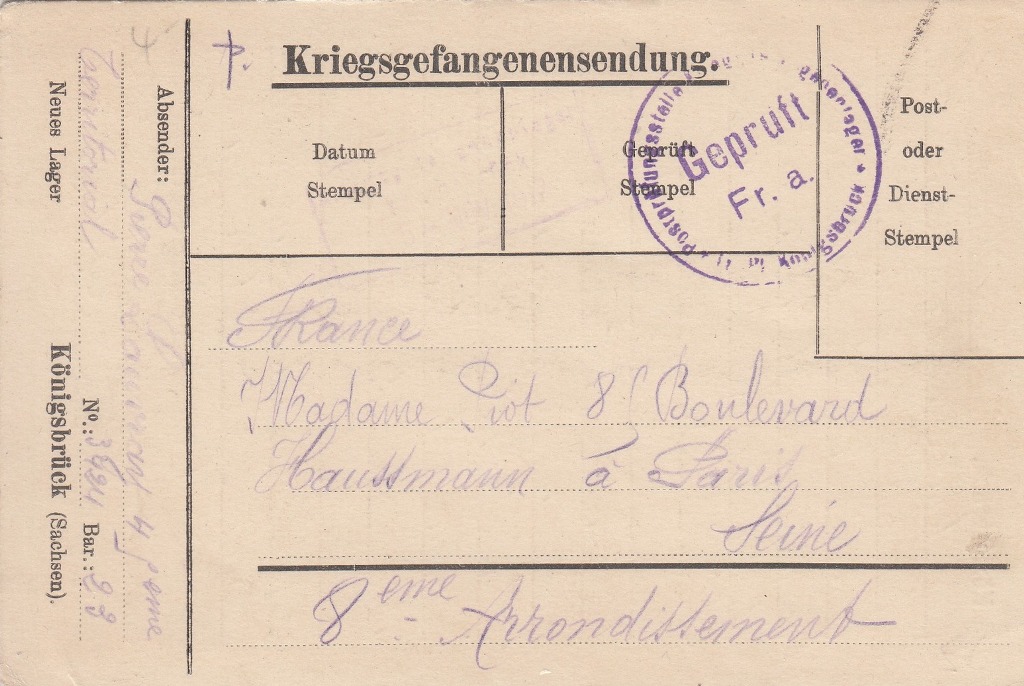 Kriegsgefangenensendung.
Datum
Stempel
Geprüft
Stempel
Post-
oder
Dienst-
Stempel
Geprüft
Fr. a.
Königsbrück
France
Madame Piot 8 Boulevard
Haussmann à Paris
Seine
8 eme Arrondissement
Absender:
4 eme
Territorial
No.: Bar.: 23
Neues Lager Königsbrück (Sachsen).